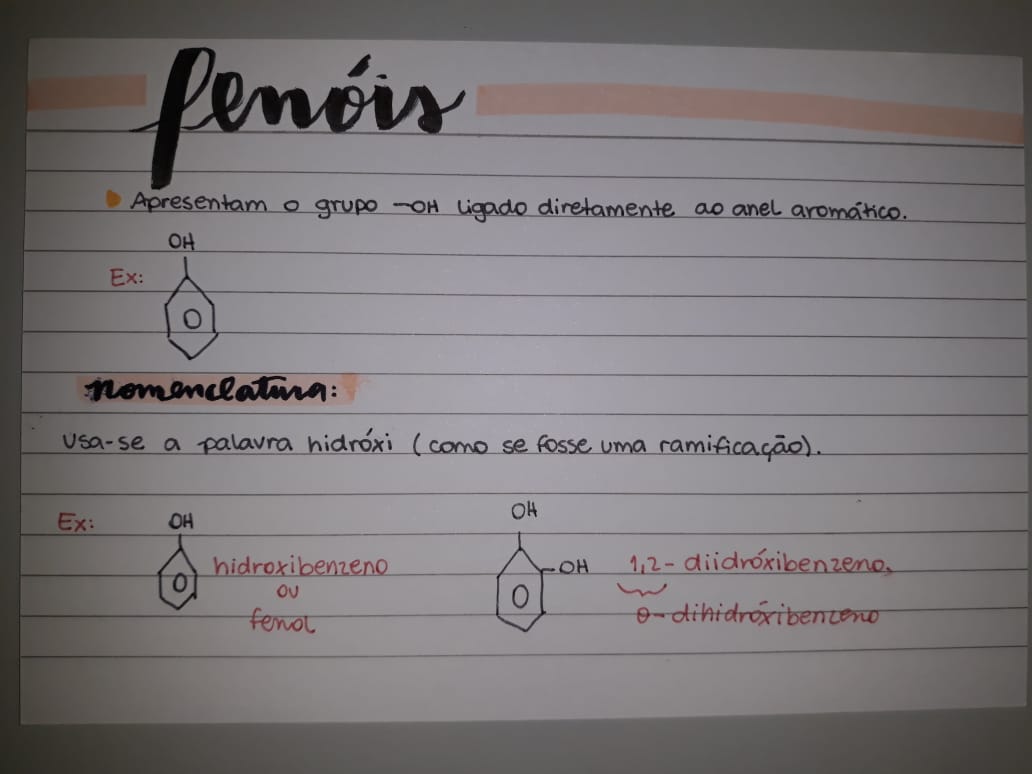 fenóis
Apresentam o grupo -OH ligado diretamente ao anel aromático.
OH
Ex:
nomenclatura:
Usa-se a palavra hidróxi (como se fosse uma ramificação).
Ex:
OH
hidroxibenzeno
ou
fenol
OH
OH
1,2-diidróxibenzeno,
o-dihidróxibenzeno